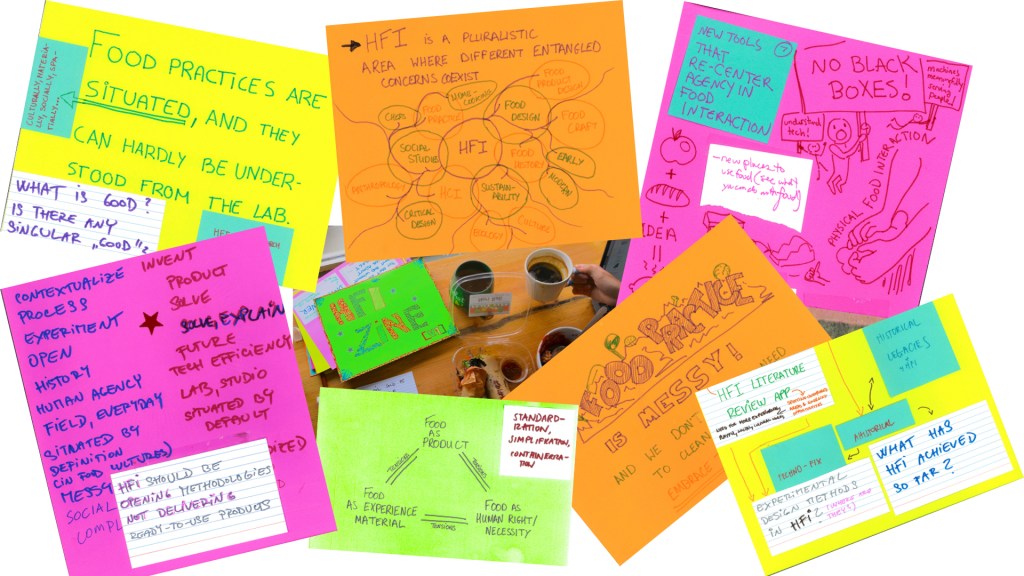 FOOD PRACTICES ARE
SITUATED, AND THEY
CAN HARDLY BE UNDER-
STOOD FROM THE LAB.
CULTURALLY, MATERIA-
LLY, SOCIALLY, SPA-
TIALLY...
WHAT IS GOOD?
IS THERE ANY
SINGULAR „GOOD"?
→ HFI IS A PLURALISTIC
AREA WHERE DIFFERENT ENTANGLED
CONCERNS COEXIST
HOME-COOKING
FOOD PRODUCT DESIGN
CHORS
FOOD PRACTICE
FOOD DESIGN
FOOD CRAFT
SOCIAL STUDIES
HFI
FOOD HISTORY
EARLY
MODERN
ARCHAEOLOGY
HCI
SUSTAIN-
ABILITY
CRITICAL DESIGN
BIOLOGY
CULTURE
NEW TOOLS
THAT
RE-CENTER
AGENCY IN
FOOD
INTERACTION
?
NO BLACK
BOXES!
machines
meaningfully
serving
people!
understand
tech!
- new places to
use food (see what
you can do with food)
PHYSICAL FOOD INTERACTION
+
+
IDEA
CONTEXTUALIZE
PROCESS
EXPERIMENT
OPEN
HISTORY
HUMAN AGENCY
FIELD, EVERYDAY
SITUATED BY
DEFINITION
(IN FOOD CULTURES)
MESSY
SOCIAL
INVENT
PRODUCT
SOLVE
EXPLAIN
FUTURE
TECH EFFICIENCY
LAB, STUDIO
SITUATED BY
DEFAULT
HFI SHOULD BE
OPENING METHODOLOGIES
NOT DELIVERING
READY-TO-USE PRODUCTS
HFI
ZINE
FOOD
AS
PRODUCT
TENSIONS
TENSIONS
FOOD
AS EXPERIENCE
MATERIAL
TENSIONS
FOOD AS
HUMAN RIGHT/
NECESSITY
STANDARD-
IZATION,
SIMPLIFICATION,
FOOD PRACTICE
IS MESSY!
AND WE DON'T NEED
TO CLEAN
EMBRACE
HFI LITERATURE
REVIEW APP
HISTORICAL
LEGACIES
AHISTORICAL
TECHNO-FIX
WHAT HAS
HFI ACHIEVED
SO FAR?
EXPERIMENTAL
DESIGN METHODS
IN HFI? (WHERE ARE
THEY?)